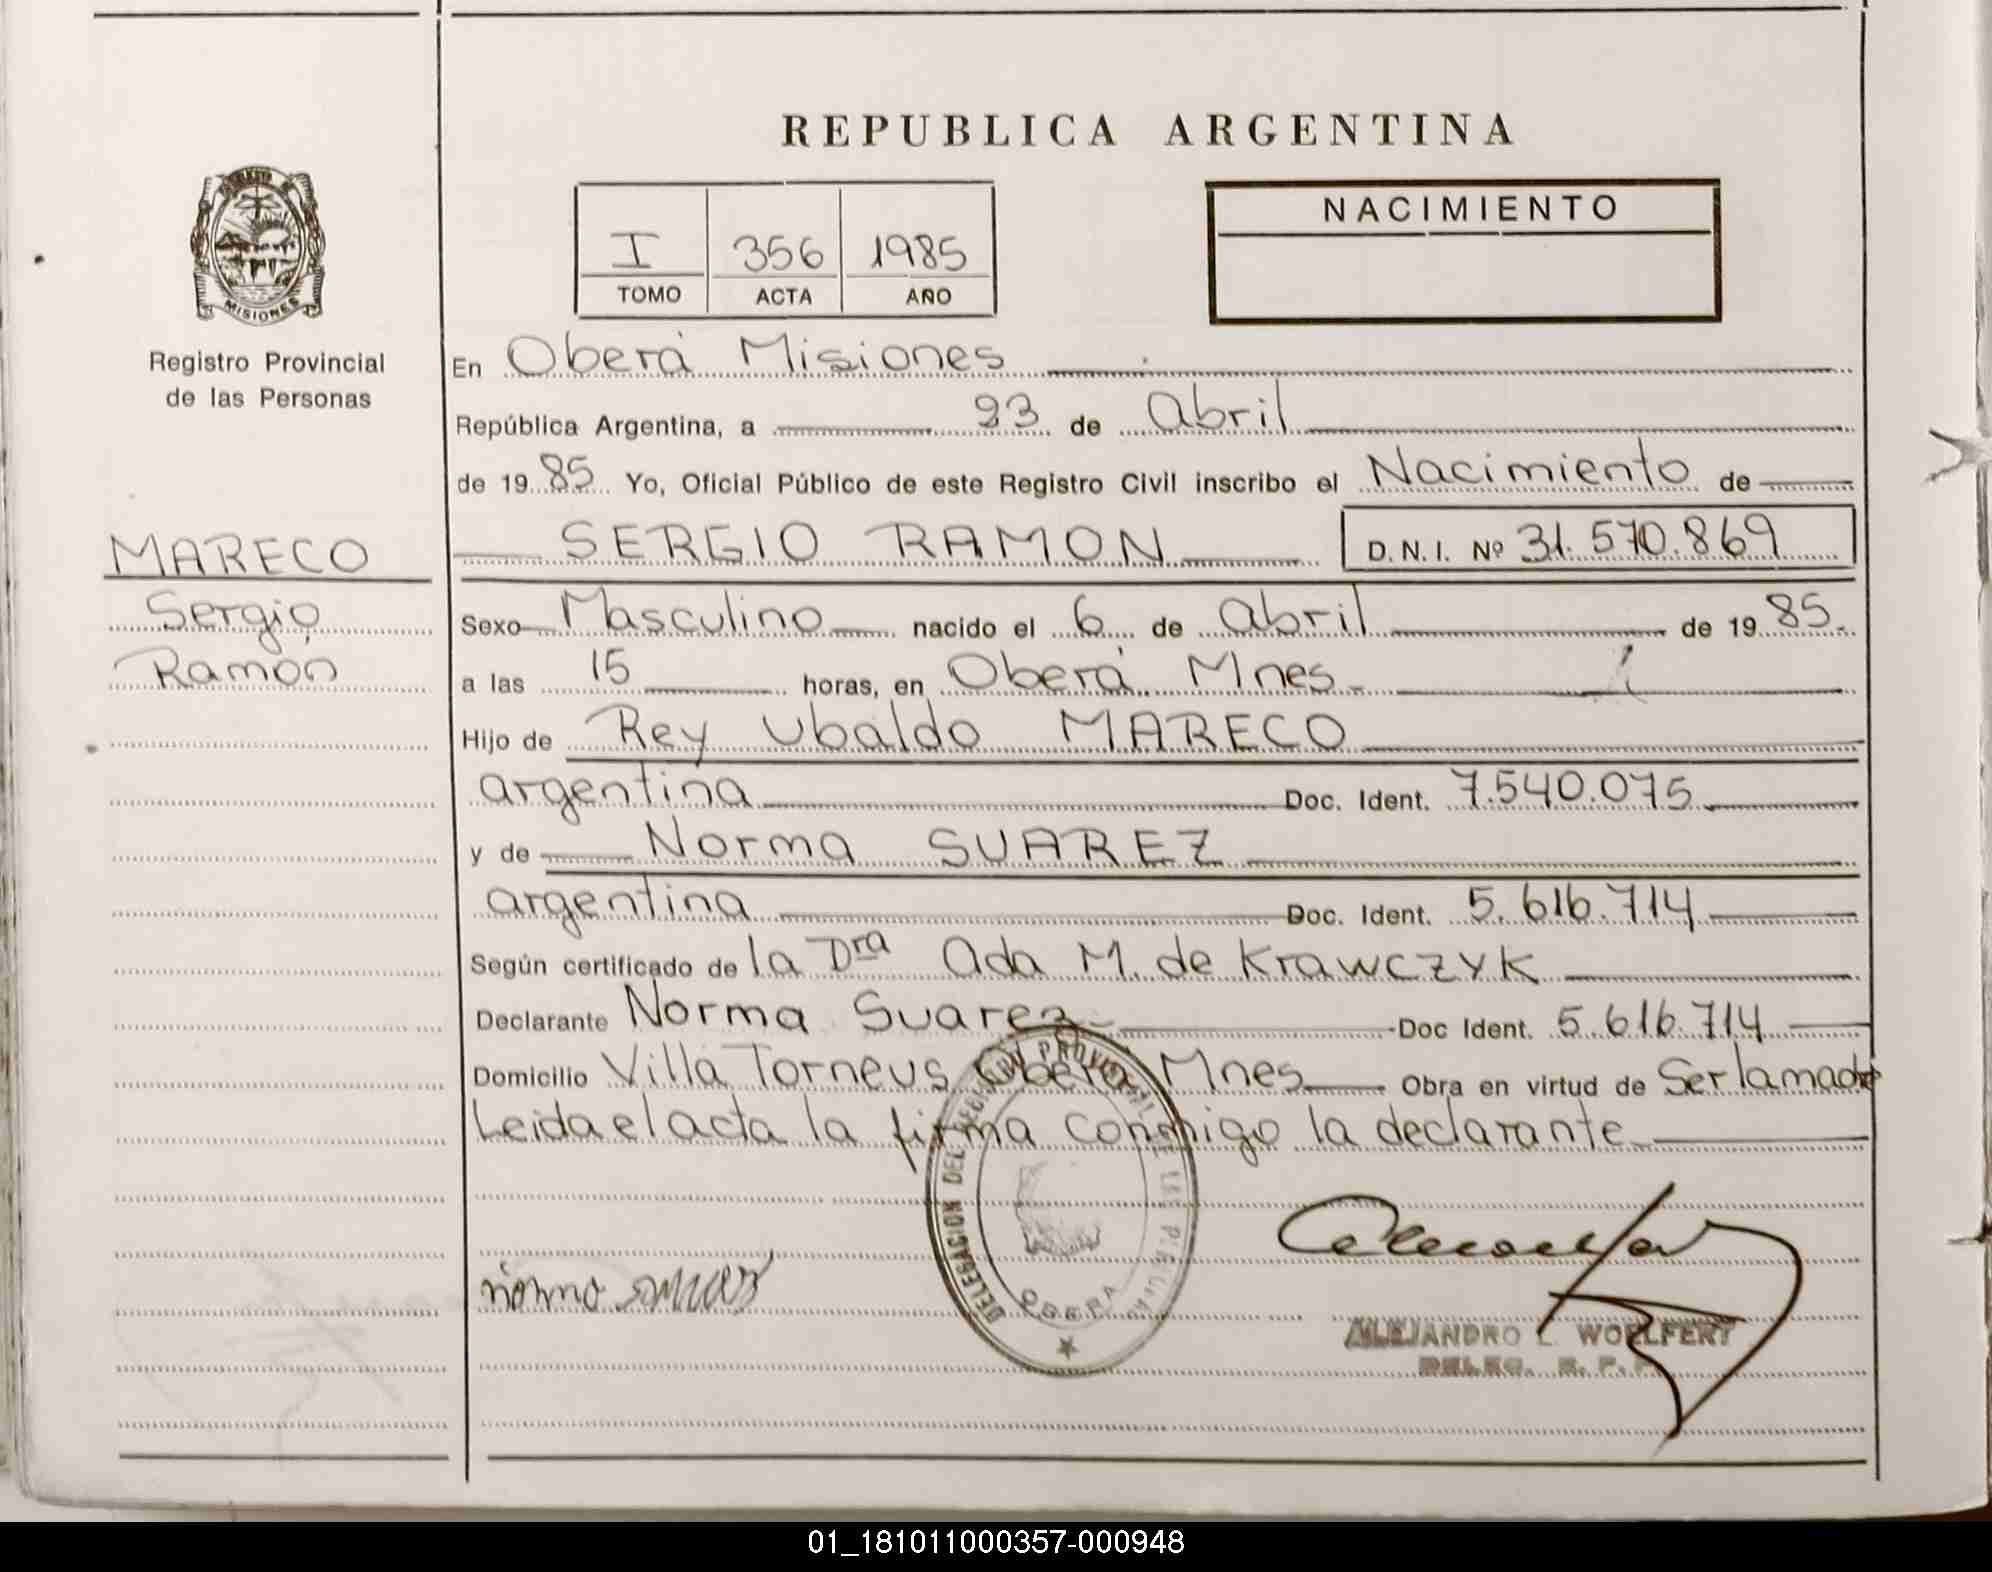 REPUBLICA ARGENTINA
MISIONES
Registro Provincial
de las Personas
MARECO
Sergio
Ramón
I 356 1985
TOMO ACTA AÑO
NACIMIENTO
En Oberá Misiones
República Argentina, a 23 de Abril
de 1985 Yo, Oficial Público de este Registro Civil inscribo el Nacimiento de
SERGIO RAMON D.N.I. Nº 31.570.869
Sexo Masculino nacido el 6 de Abril de 1985.
a las 15 horas, en Oberá Mnes.
Hijo de Rey Ubaldo MARECO
argentina Doc. Ident. 7.540.075
y de Norma SUAREZ
argentina Doc. Ident. 5.616.714
Según certificado de la Dra Ada M. de Krawczyk
Declarante Norma Suarez Doc Ident. 5.616.714
Domicilio Villa Torneus Oberá Mnes Obra en virtud de Ser la madre
Leida el acta la firma conmigo la declarante
DELEGACION DEL REGISTRO PROVINCIAL DE LAS
OBERA
norma suarez
ALEJANDRO L. WOELFERT
DELEG. R. P. P.
01_181011000357-000948